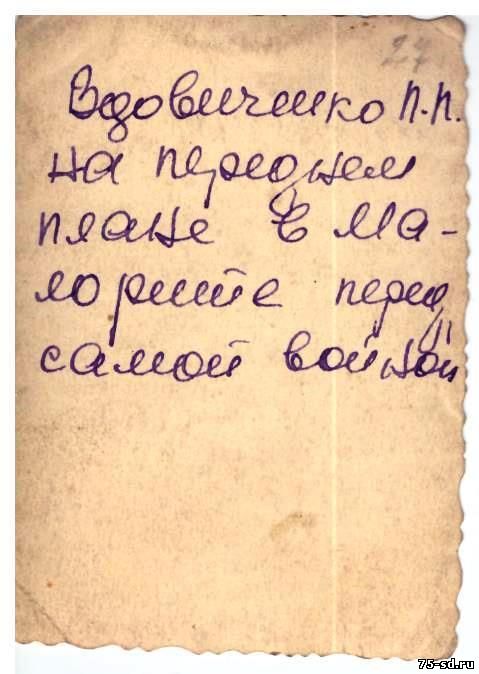 27
Вдовиченко П.П.
на переднем
плане в Ма-
лорите перед
самой войной
75-sd.ru